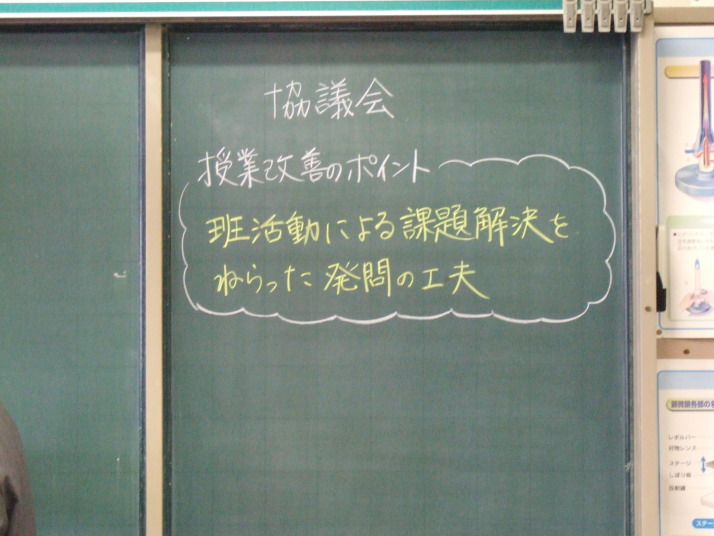 協議会
授業改善のポイント
班活動による課題解決を
ねらった発問の工夫
顕微鏡各部の
レボルバー
対物レンズ
ステージ
しぼり板
反射鏡